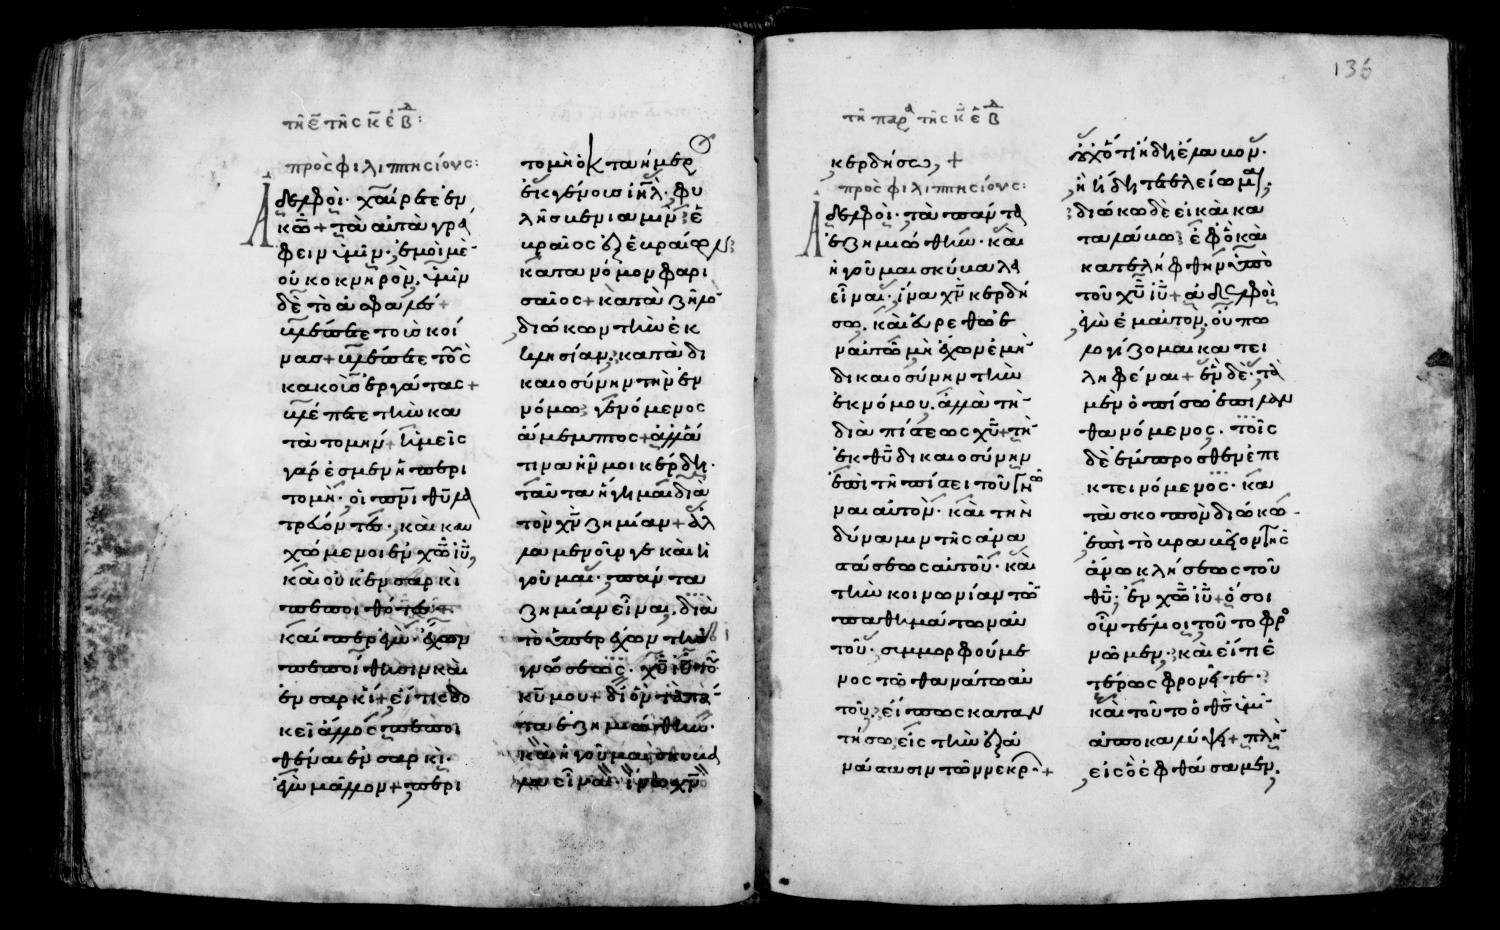 τῆ ε̄ τῆς κ̄ ἑβδ:
πρὸς φιλιππησίους:
Ἀδελφοὶ· χαίρετε ἐν
κω̅· + τὰ αὐτὰ γρά
φειν ὑμῖν· ἐμοὶ μὲ
οὐκ ὀκνηρὸν, ὑμῖν
δὲ τὸ ἀσφαλές +
βλέπετε τοὺς κοί
νας + βλέπετε τοὺς
κακοὺς ἐργάτας +
βλέπετε τὴν κα
τατομήν + ἡμεῖς
γάρ ἐσμεν ἡ περι
τομὴ· οἱ πνι̅ θυ̅ λα
τρεύοντες· καὶ καυ
χώμενοι ἐν χω̅ ιυ̅,
καὶ οὐκ ἐν σαρκὶ
πεποιθότες +
καίπερ ἐγὼ· ἔχων
πεποίθησιν καὶ
ἐν σαρκί + εἴ τις δο
κεῖ ἄλλος πεποι
θέναι ἐν σαρκὶ·
ἐγὼ μᾶλλον + περι
τομὴ ὀκταήμερ
ἐκ γένους ιη̅λ· φυ
λῆς βενιαμὶν ἑ
βραῖος ἐξ ἑβραίων
κατὰ νόμον φαρι
σαῖος + κατὰ ζῆλο
διώκων τὴν ἐκ
κλησίαν κατὰ δι
καιοσύνην τὴν ἐν
νόμω γενόμενος
ἄμεμπτος + ἀλλ᾽ ἅ
τινα ἦν μοι κέρδη·
ταῦτα ἥγημαι διὰ
τὸν χν̅ ζημίαν + ἀλ
λὰ μενοῦνγε καὶ ἡ
γοῦμαι· πάντα
ζημίαν εἶναι, διὰ
τὸ ὑπερέχον τῆς
γνώσεως· χυ̅ ιυ̅ τοῦ
κυ̅ μου + δι᾽ ὃν τὰ πά
ντα ἐζημιώθην·
καὶ ἡγοῦμαι σκύβα
λα εἶναι· ἵνα χν̅
136
τῆ παρα τῆς κ̄ ἑβδ
κερδήσω, +
πρὸς φιλιππησίους:
Ἀδελφοὶ· τὰ πάντα
ἐζημιώθην· καὶ
ἡγοῦμαι σκύβαλα
εἶναι· ἵνα χν̅ κερδή
σω, καὶ εὑρεθῶ ἐ
ν αὐτῶ μὴ ἔχων ἐμὴ
δικαιοσύνην τὴν
ἐκ νόμου, ἀλλὰ τὴ
διὰ πίστεως χυ̅ + τὴ
ἐκ θυ̅ δικαιοσύνην
ἐπὶ τῆ πίστει τοῦ γνῶ
ναι αὐτὸν· καὶ τὴν
δύναμιν τῆς ἀνα
στάσεως αὐτοῦ· καὶ
τὴν κοινωνίαν τῶ
παθημάτων αὐ
τοῦ· συμμορφούμε
νος τῶ θανάτω αὐ
τοῦ εἴ πως καταν
τήσω εἰς τὴν ἐξα
νάστασιν τῶν νεκρ +
οὐχ᾽ ὅτι ἤδη ἔλαβον·
ἢ ἤδη τετελείωμαι·
διώκω δὲ εἰ καὶ κα
ταλάβω ἐφ᾽ ᾧ καὶ
κατελήφθην ὑπὸ
τοῦ χυ̅ ιυ̅ + ἀδελφοὶ
ἐγὼ ἐμαυτὸν, οὔπω
λογίζομαι κατει
ληφέναι + ἓν δὲ· τὰ
μὲν ὀπίσω ἐπιλαν
θανόμενος, τοῖς
δὲ ἔμπροσθεν ἐπε
κτεινόμενος· κα
τὰ σκοπὸν διώκω
ἐπὶ τὸ βραβεῖον τῆς
ἄνω κλήσεως τοῦ
θυ̅· ἐν χω̅ ιυ̅ + ὅσοι
οὖν τέλειοι τοῦτο φρο
νῶμεν· καὶ εἴ τι ἑ
τέρως φρονεῖτε·
καὶ τοῦτο ὁ θς̅ ὑμῖ
ἀποκαλύψει + πλὴ
εἰς ὃ ἐφθάσαμεν,